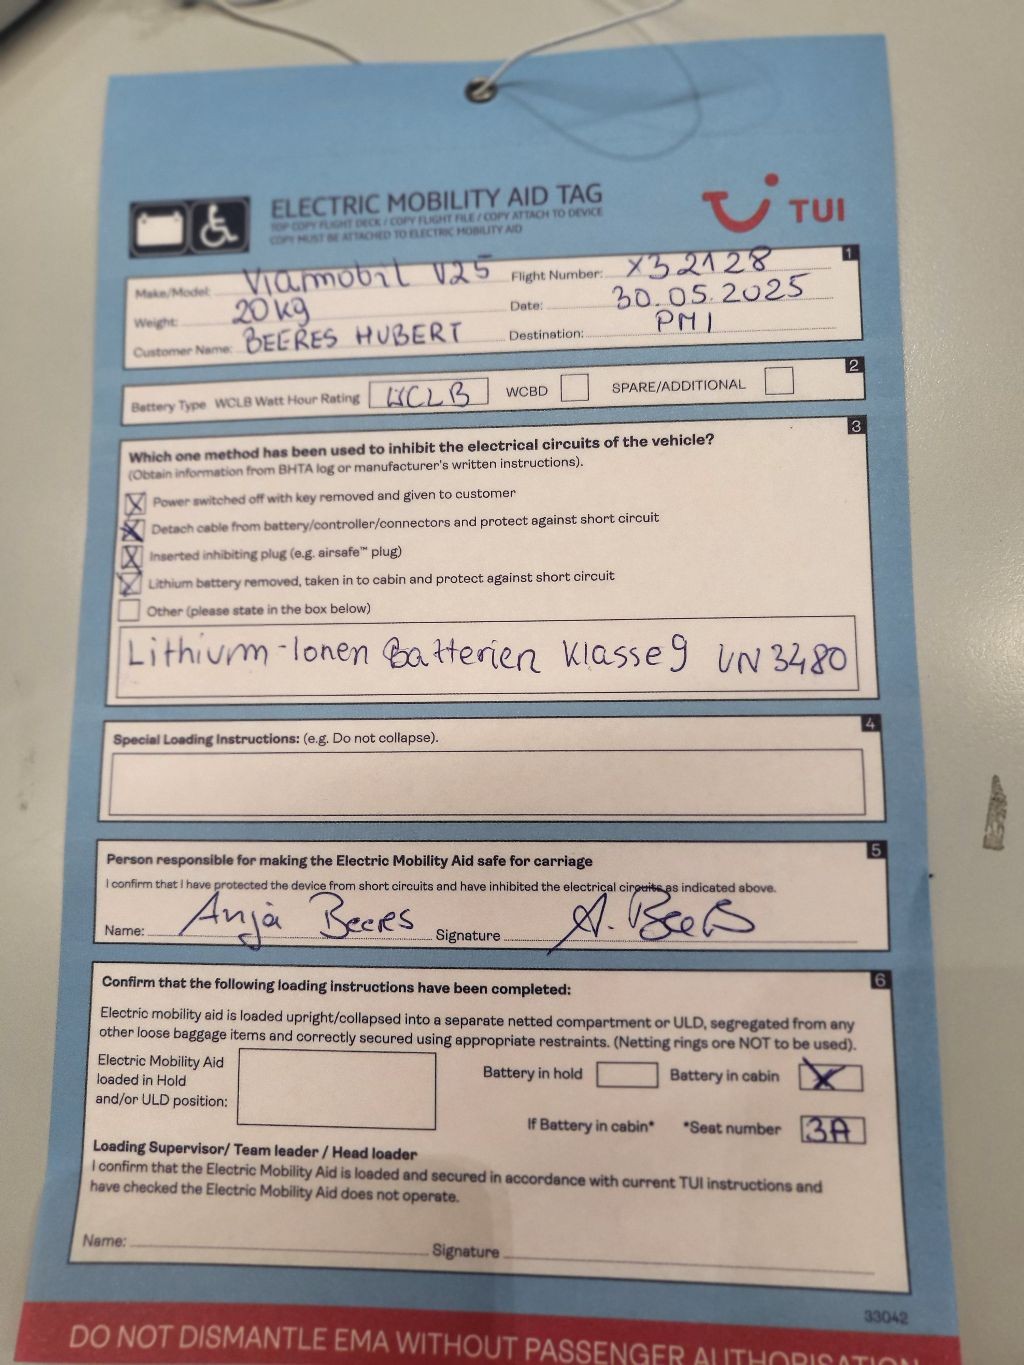 ELECTRIC MOBILITY AID TAG
TOP COPY FLIGHT DECK / COPY FLIGHT FILE / COPY ATTACH TO DEVICE
COPY MUST BE ATTACHED TO ELECTRIC MOBILITY AID
TUI
1
Make/Model: Viamobil V25 Flight Number: X3 2128
Weight: 20kg Date: 30.05.2025
Customer Name: BEERES HUBERT Destination: PMI
2
Battery Type WCLB Watt Hour Rating WCLB WCBD SPARE/ADDITIONAL
3
Which one method has been used to inhibit the electrical circuits of the vehicle?
(Obtain information from BHTA log or manufacturer's written instructions).
X Power switched off with key removed and given to customer
X Detach cable from battery/controller/connectors and protect against short circuit
X Inserted inhibiting plug (e.g. airsafe™ plug)
X Lithium battery removed, taken in to cabin and protect against short circuit
Other (please state in the box below)
Lithium-Ionen Batterien Klasse 9 UN 3480
4
Special Loading Instructions: (e.g. Do not collapse).
5
Person responsible for making the Electric Mobility Aid safe for carriage
I confirm that I have protected the device from short circuits and have inhibited the electrical circuits as indicated above.
Name: Anja Beeres Signature A. Beeres
6
Confirm that the following loading instructions have been completed:
Electric mobility aid is loaded upright/collapsed into a separate netted compartment or ULD, segregated from any
other loose baggage items and correctly secured using appropriate restraints. (Netting rings are NOT to be used).
Electric Mobility Aid
loaded in Hold
and/or ULD position:
Battery in hold Battery in cabin X
If Battery in cabin* *Seat number 3A
Loading Supervisor/ Team leader / Head loader
I confirm that the Electric Mobility Aid is loaded and secured in accordance with current TUI instructions and
have checked the Electric Mobility Aid does not operate.
Name: Signature
33042
DO NOT DISMANTLE EMA WITHOUT PASSENGER AUTHORISATION